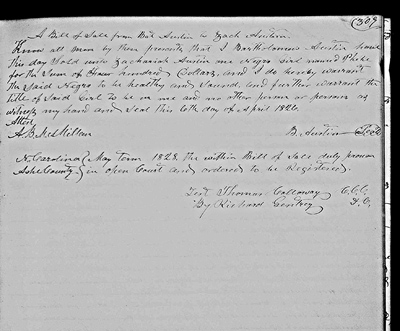 309
A Bill of Sale from Bat Austin to Zach Austin
Know all men by these presents that I Bartholomew Austin have
this day Sold unto Zachariah Austin one Negro Girl named
for the Sum of Four hundred Dollars, and I do hereby warrant
the Said Negro to be healthy and Sound, and further warrant the
title of Said Girl to be in me and no other person or persons as
witness my hand and Seal this 10th day of April 1826.
Attest
A. B. McMillan B. Austin Seal
N. Carolina } May Term 1828. The within Bill of Sale duly proven
Ashe County } in open Court and ordered to be Registered.
Test Thomas Calloway C.C.C.
By Richard Gentry D.C.